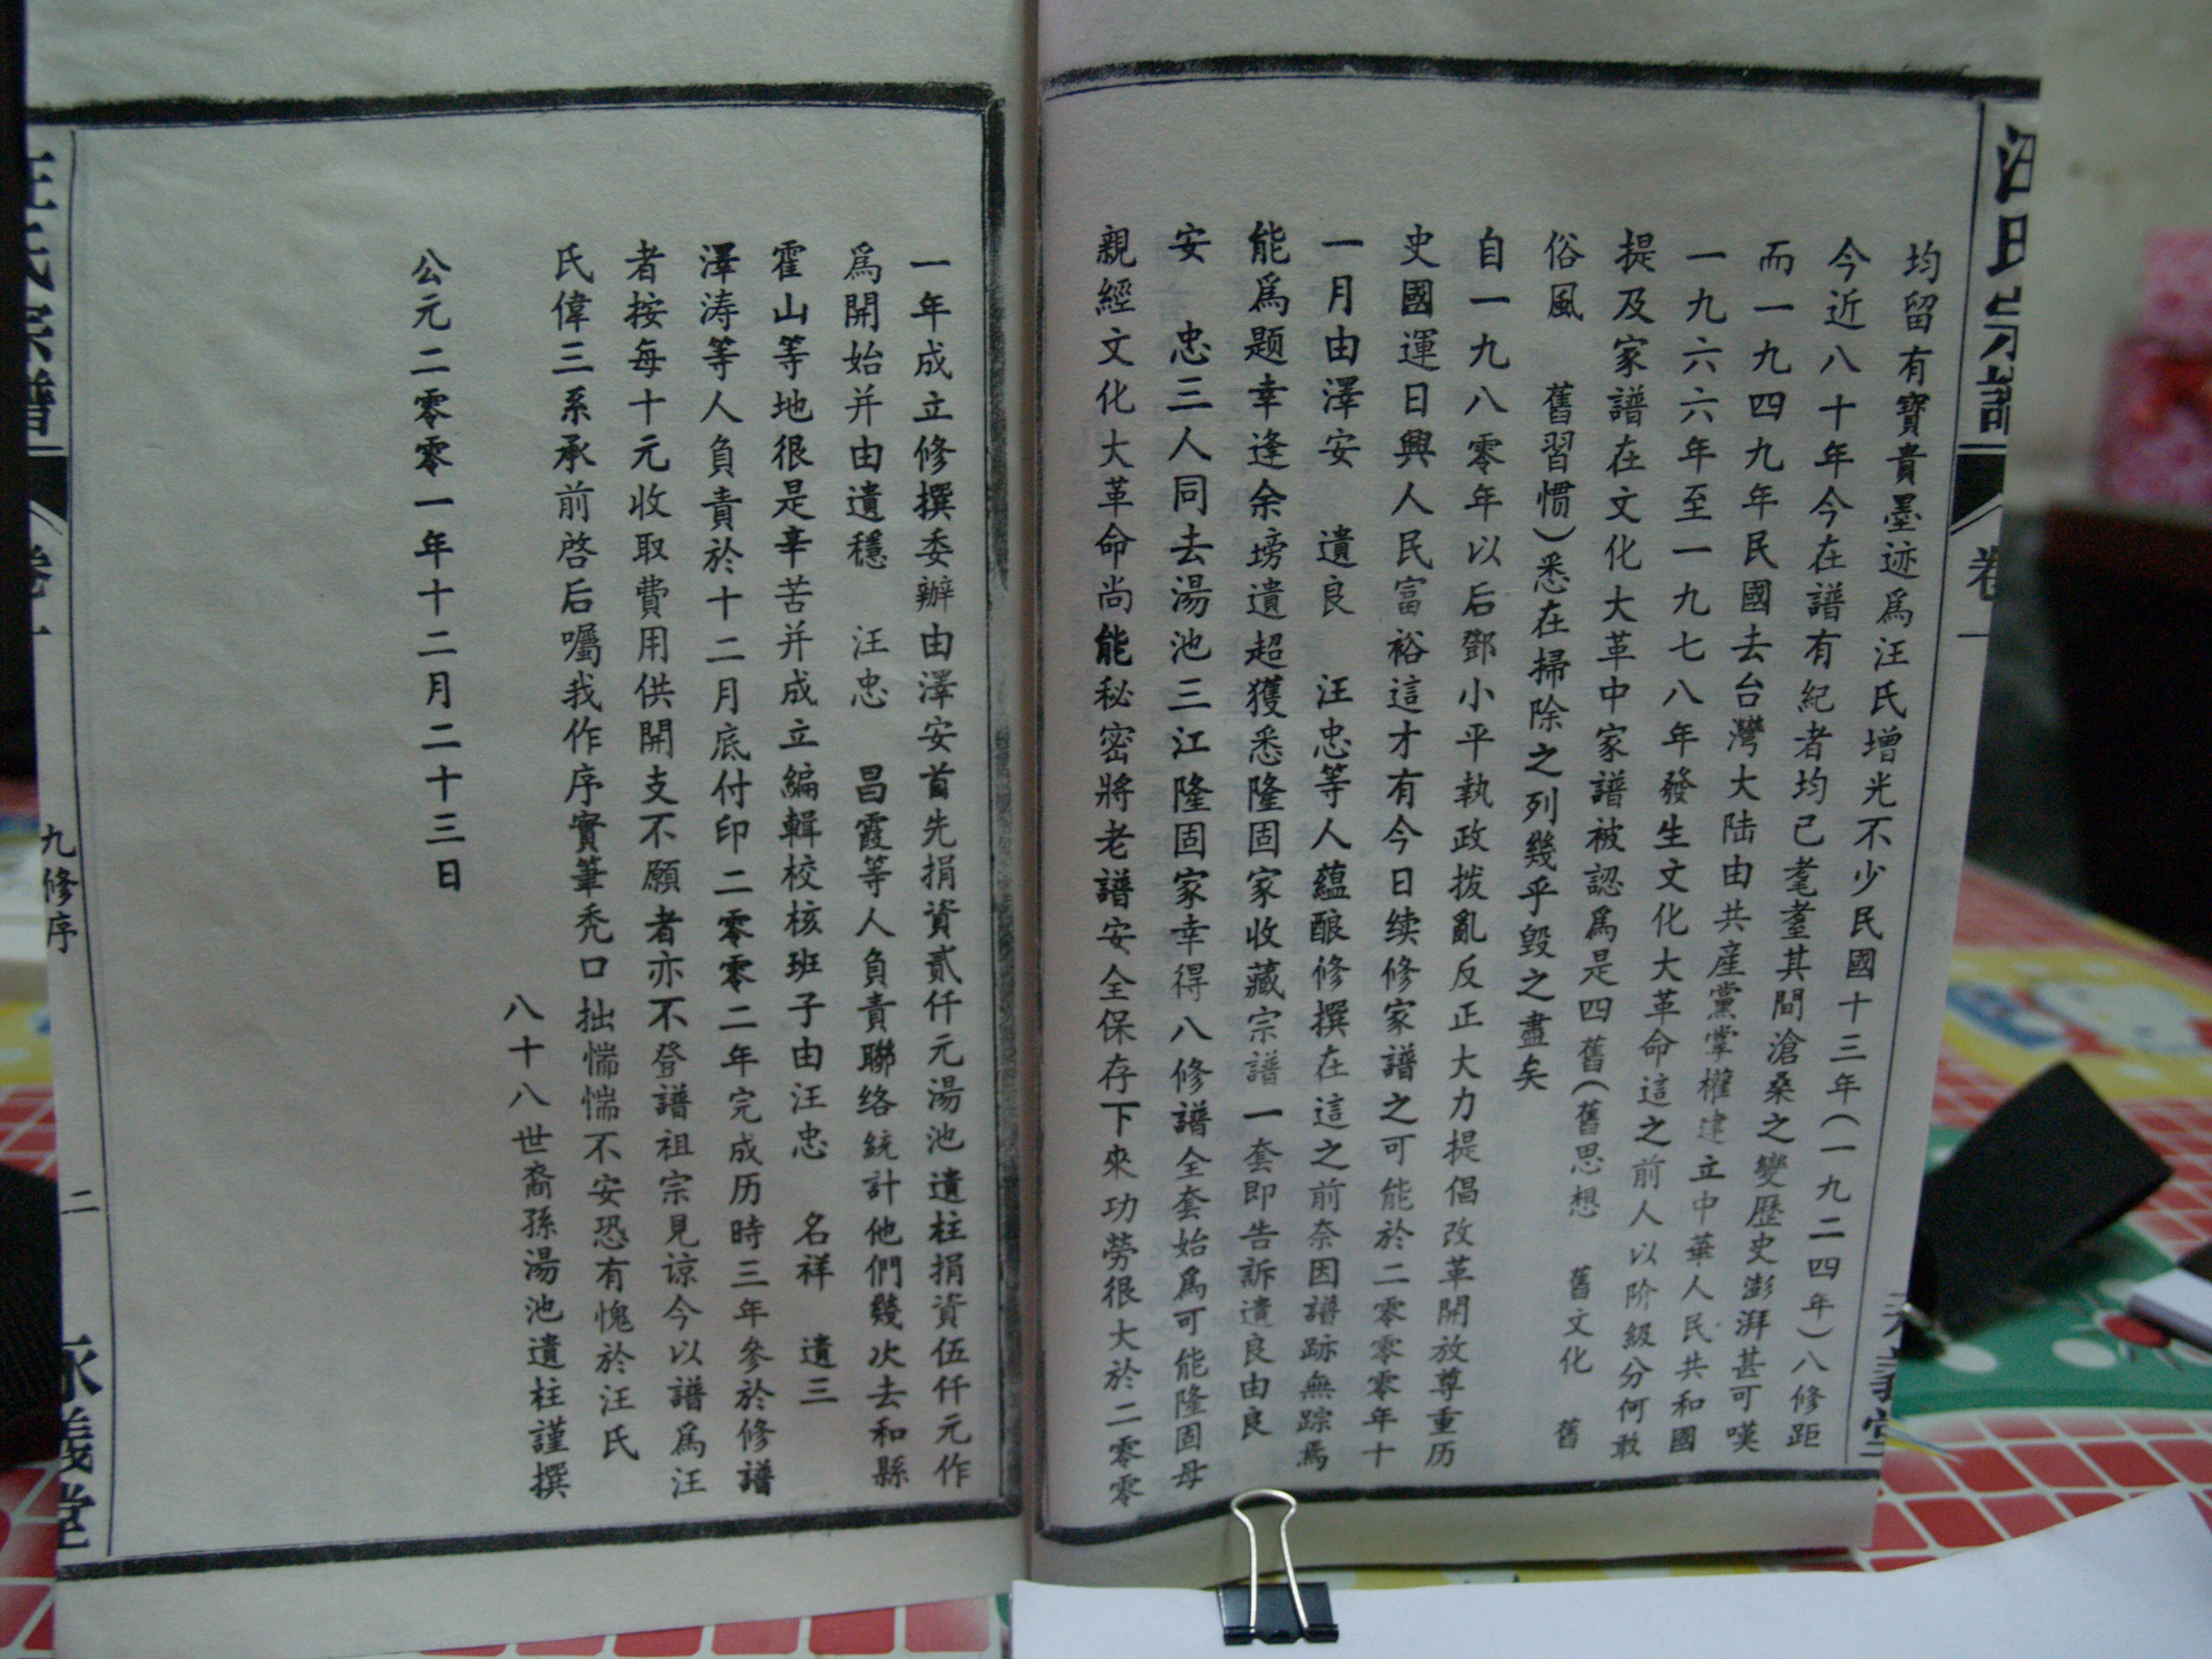 汪氏宗譜
卷一
均留有寶貴墨迹爲汪氏增光不少民國十三年(一九二四年)八修距
今近八十年今在譜有紀者均已耄耋其間滄桑之變歷史澎湃甚可嘆
而一九四九年民國去台灣大陆由共産黨掌權建立中華人民共和國
一九六六年至一九七八年發生文化大革命這之前人以阶級分何敢
提及家譜在文化大革中家譜被認爲是四舊(舊思想 舊文化 舊
俗風 舊習慣)悉在掃除之列幾乎毁之盡矣
自一九八零年以后鄧小平執政拨亂反正大力提倡改革開放尊重历
史國運日興人民富裕這才有今日续修家譜之可能於二零零零年十
一月由澤安 遺良 汪忠等人蘊酿修撰在這之前奈因譜跡無踪焉
能爲题幸逢余塝遺超獲悉隆固家收藏宗譜一套即告訴遺良由良
安 忠三人同去湯池三江隆固家幸得八修譜全套始爲可能隆固母
親經文化大革命尚能秘密將老譜安全保存下來功勞很大於二零零
一年成立修撰委辦由澤安首先捐資貳仟元湯池遺柱捐資伍仟元作
爲開始并由遺穩 汪忠 昌霞等人負責聯络統計他們幾次去和縣
霍山等地很是辛苦并成立編輯校核班子由汪忠 名祥 遺三
澤涛等人負責於十二月底付印二零零二年完成历時三年參於修譜
者按每十元收取費用供開支不願者亦不登譜祖宗見谅今以譜爲汪
氏偉三系承前啓后囑我作序實筆秃口拙惴惴不安恐有愧於汪氏
八十八世裔孫湯池遺柱謹撰
公元二零零一年十二月二十三日
汪氏宗譜
卷一
九修序
二
永義堂